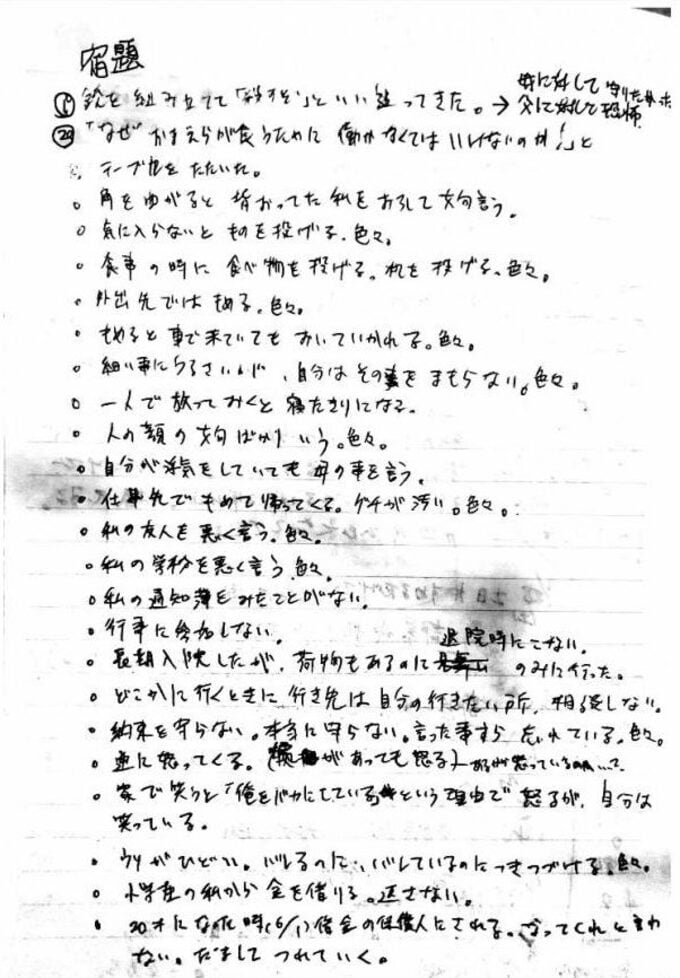 宿題
⑲ 銃を組み立てて「殺すぞ」といい迫ってきた。→ 母に対して 守りたかった
父に対して 恐怖
⑳ 「なぜ おまえらが食うために 働かなくてはいけないのか!」と
テーブルをたたいた。
。角をまがると 背おってた 私を おろして文句言う。
。気に入らないと ものを投げる。色々。
。食事の時に 食べ物を投げる。机を投げる。色々。
。外出先ではもめる。色々。
。もめると車で来ていても おいていかれる。色々。
。細い事にうるさいが、自分はその事をまもらない。色々。
。一人で放っておくと 寝たきりになる。
。人の顔の文句ばかりいう。色々。
。自分が浮気をしていても 母の事を言う。
。仕事先でもめて帰ってくる。グチが汚い。色々。
。私の友人を悪く言う。色々。
。私の学校を悪く言う。色々。
。私の通知簿をみたことがない。
。行事に参加しない。
退院時にこない。
。長期入院したが、荷物もあるのに のみに行った。
。どこかに行くときに 行き先は 自分の行きたい所、相談しない。
。約束を守らない。本当に守らない。言った事すら 忘れている。色々。
。逆に怒ってくる。( があっても怒る)
。家で笑うと「俺をバカにしている」という理由で 怒るが、自分は
笑っている。
。ウソがひどい。バレるのに、バレているのにつきつづける。色々。
。小学生の私から 金を借りる。返さない。
。20才になった時(6/1)借金の保証人にされる。なってくれと言わ
ない。だまして つれていく。